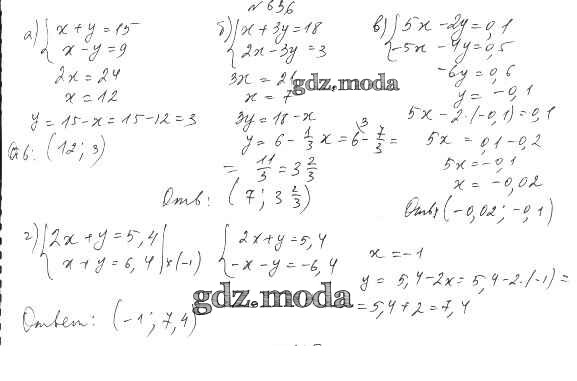 № 636
а) { x + y = 15
x − y = 9
2x = 24
x = 12
y = 15 − x = 15 − 12 = 3
Отв: (12; 3)
б) { x + 3y = 18
2x − 3y = 3
3x = 21
x = 7
3y = 18 − x
y = 6 − 1/3 x = 6 − 7/3 =
= 11/3 = 3 2/3
Отв: (7; 3 2/3)
в) { 5x − 2y = 0,1
−5x − 4y = 0,5
−6y = 0,6
y = −0,1
5x − 2·(−0,1) = 0,1
5x = 0,1 − 0,2
5x = −0,1
x = −0,02
Отв: (−0,02; −0,1)
г) { 2x + y = 5,4
x + y = 6,4 | × (−1)
{ 2x + y = 5,4
−x − y = −6,4
x = −1
y = 5,4 − 2x = 5,4 − 2·(−1) =
= 5,4 + 2 = 7,4
Ответ: (−1; 7,4)
gdz.moda
gdz.moda